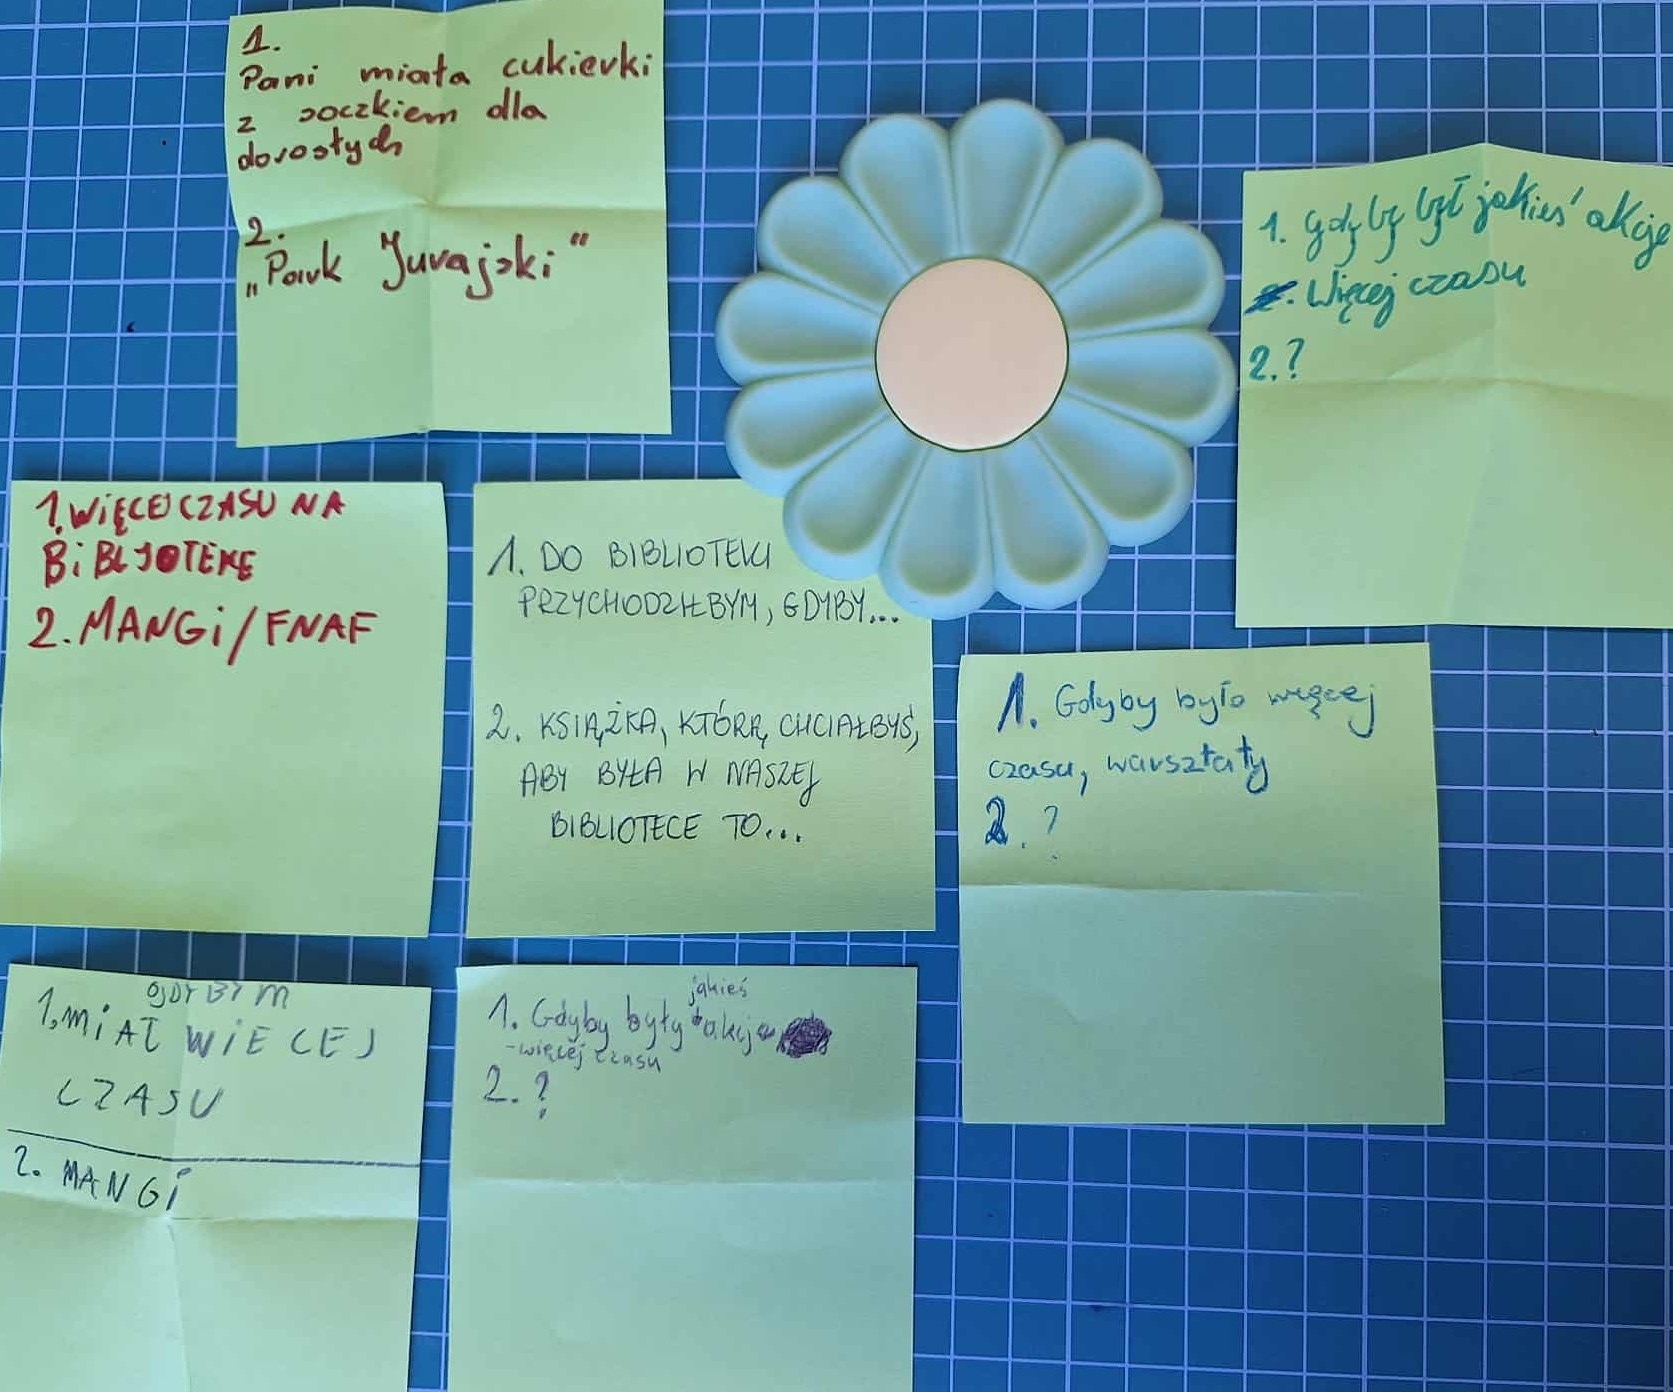 1.
Pani miała cukierki
z soczkiem dla
dorosłych
2.
„Park Jurajski"
1. gdy by był jakieś akcje
Więcej czasu
2.?
1. WIĘCEJ CZASU NA
BIBLJOTEKĘ
2. MANGI/FNAF
1. DO BIBLIOTEKI
PRZYCHODZIŁBYM, GDYBY...
2. KSIĄŻKA, KTÓRĄ CHCIAŁBYŚ,
ABY BYŁA W NASZEJ
BIBLIOTECE TO...
1. Gdyby było więcej
czasu, warsztaty
2. ?
GDYBYM
1. MIAŁ WIECEJ
CZASU
2. MANGI
jakieś
1. Gdyby były akcje
-więcej czasu
2. ?